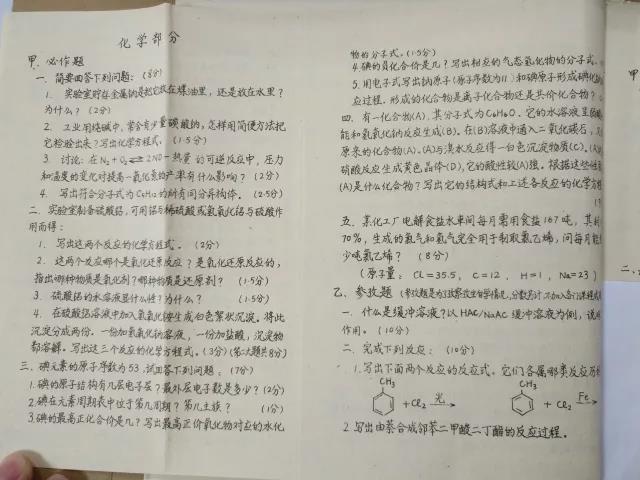 化学部分
甲．必作题
一．简要回答下列问题：(8分)
1．实验室贮存金属钠是把它放在煤油里，还是放在水里？
为什么？(2分)
2．工业用烧碱中，常含有少量碳酸钠，怎样用简便方法把
它检验出来？写出化学方程式．(1.5分)
3．讨论：在N₂+O₂⇌2NO−热量 的可逆反应中，压力
和温度的变化对提高一氧化氮的产率有什么影响？(2分)
4．写出符合分子式为C₅H₁₂的所有同分异构体。(2.5分)
二．实验室制备硫酸铝，可用铝与稀硫酸或氢氧化铝与硫酸作
用而得：
1．写出这两个反应的化学方程式。(2分)
2．这两个反应哪个是氧化还原反应？是氧化还原反应的，
指出哪种物质是氧化剂？哪种物质是还原剂？(1.5分)
3．硫酸铝的水溶液显什么性？为什么？(1.5分)
4．在硫酸铝溶液中加入氢氧化铵生成白色絮状沉淀。将此
沉淀分成两份．一份加氢氧化钠溶液，一份加盐酸，沉淀物
都溶解。写出这三个反应的化学方程式。(3分)(第二大题共8分)
三．碘元素的原子序数为53，试回答下列问题：(7分)
1．碘的原子结构有几层电子层？最外层电子数是多少？(2分)
2．碘在元素周期表中位于第几周期？第几主族？(1分)
3．碘的最高正化合价是几？写出最高正价氧化物对应的水化
物的分子式。(1.5分)
4．碘的负化合价是几？写出相应的气态氢化物的分子式．
5．用电子式写出钠原子(原子序数为11)和碘原子形成碘化
应过程．形成的化合物是离子化合物还是共价化合物？
四．有一化合物(A)，其分子式为C₆H₆O．它的水溶液呈弱
能和氢氧化钠反应生成(B)．在(B)溶液中通入二氧化碳后，又
原来的化合物(A)．(A)与溴水反应得一白色沉淀物质(C)．(A)
硝酸反应生成黄色晶体(D)，它的酸性较(A)强。根据这些性
(A)是什么化合物？写出它的结构式和上述各反应的化学方程
五．某化工厂电解食盐水车间每月需用食盐167吨，其
70%，生成的氯气和氢气完全用于制取氯乙烯，问每月能
少吨氯乙烯？(8分)
(原子量：Cl=35.5，C=12，H=1，Na=23)
乙．参考题
一．什么是缓冲溶液？以HAC/NaAC缓冲溶液为例，说
作用。(10分)
二．完成下列反应：(10分)
1．写出下面两个反应的反应式，它们各属哪类反应历
CH₃ CH₃
+Cl₂ 光→ +Cl₂ Fe→
2．写出由萘合成邻苯二甲酸二丁酯的反应过程。
甲
二．